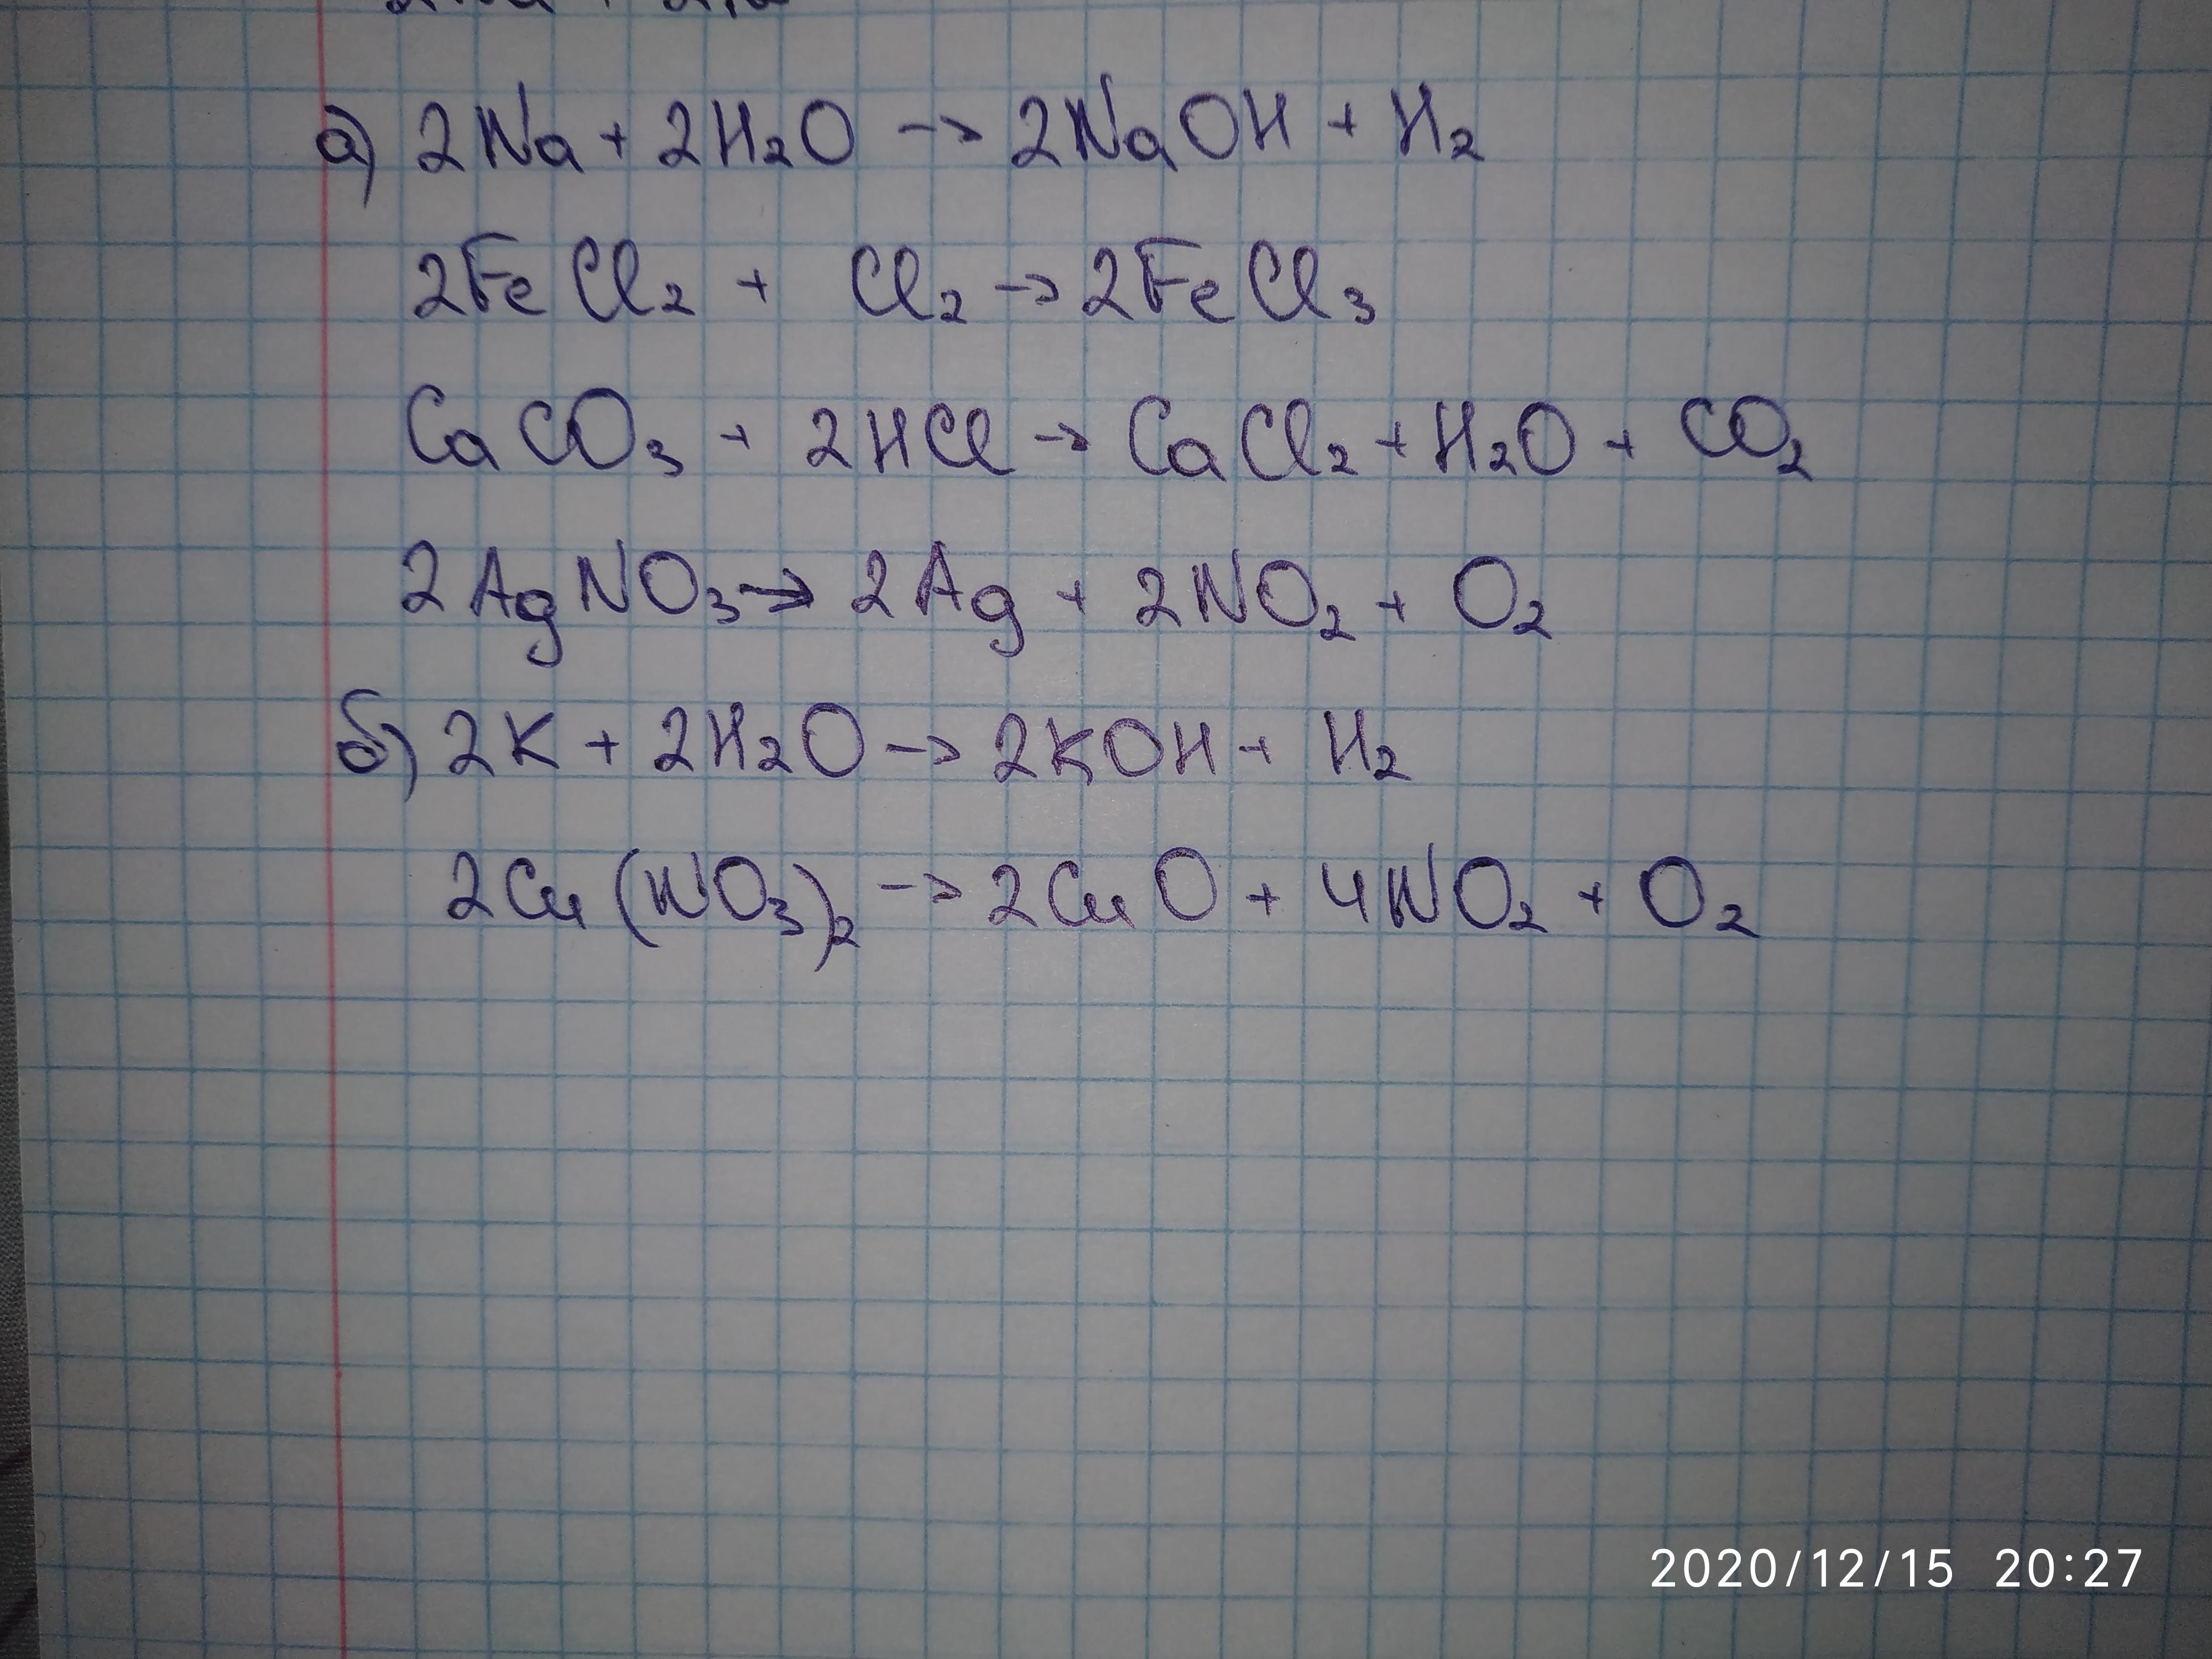 а) 2Na + 2H₂O → 2NaOH + H₂
2FeCl₂ + Cl₂ → 2FeCl₃
CaCO₃ + 2HCl → CaCl₂ + H₂O + CO₂
2AgNO₃ → 2Ag + 2NO₂ + O₂
б) 2K + 2H₂O → 2KOH + H₂
2Cu(NO₃)₂ → 2CuO + 4NO₂ + O₂
2020/12/15 20:27